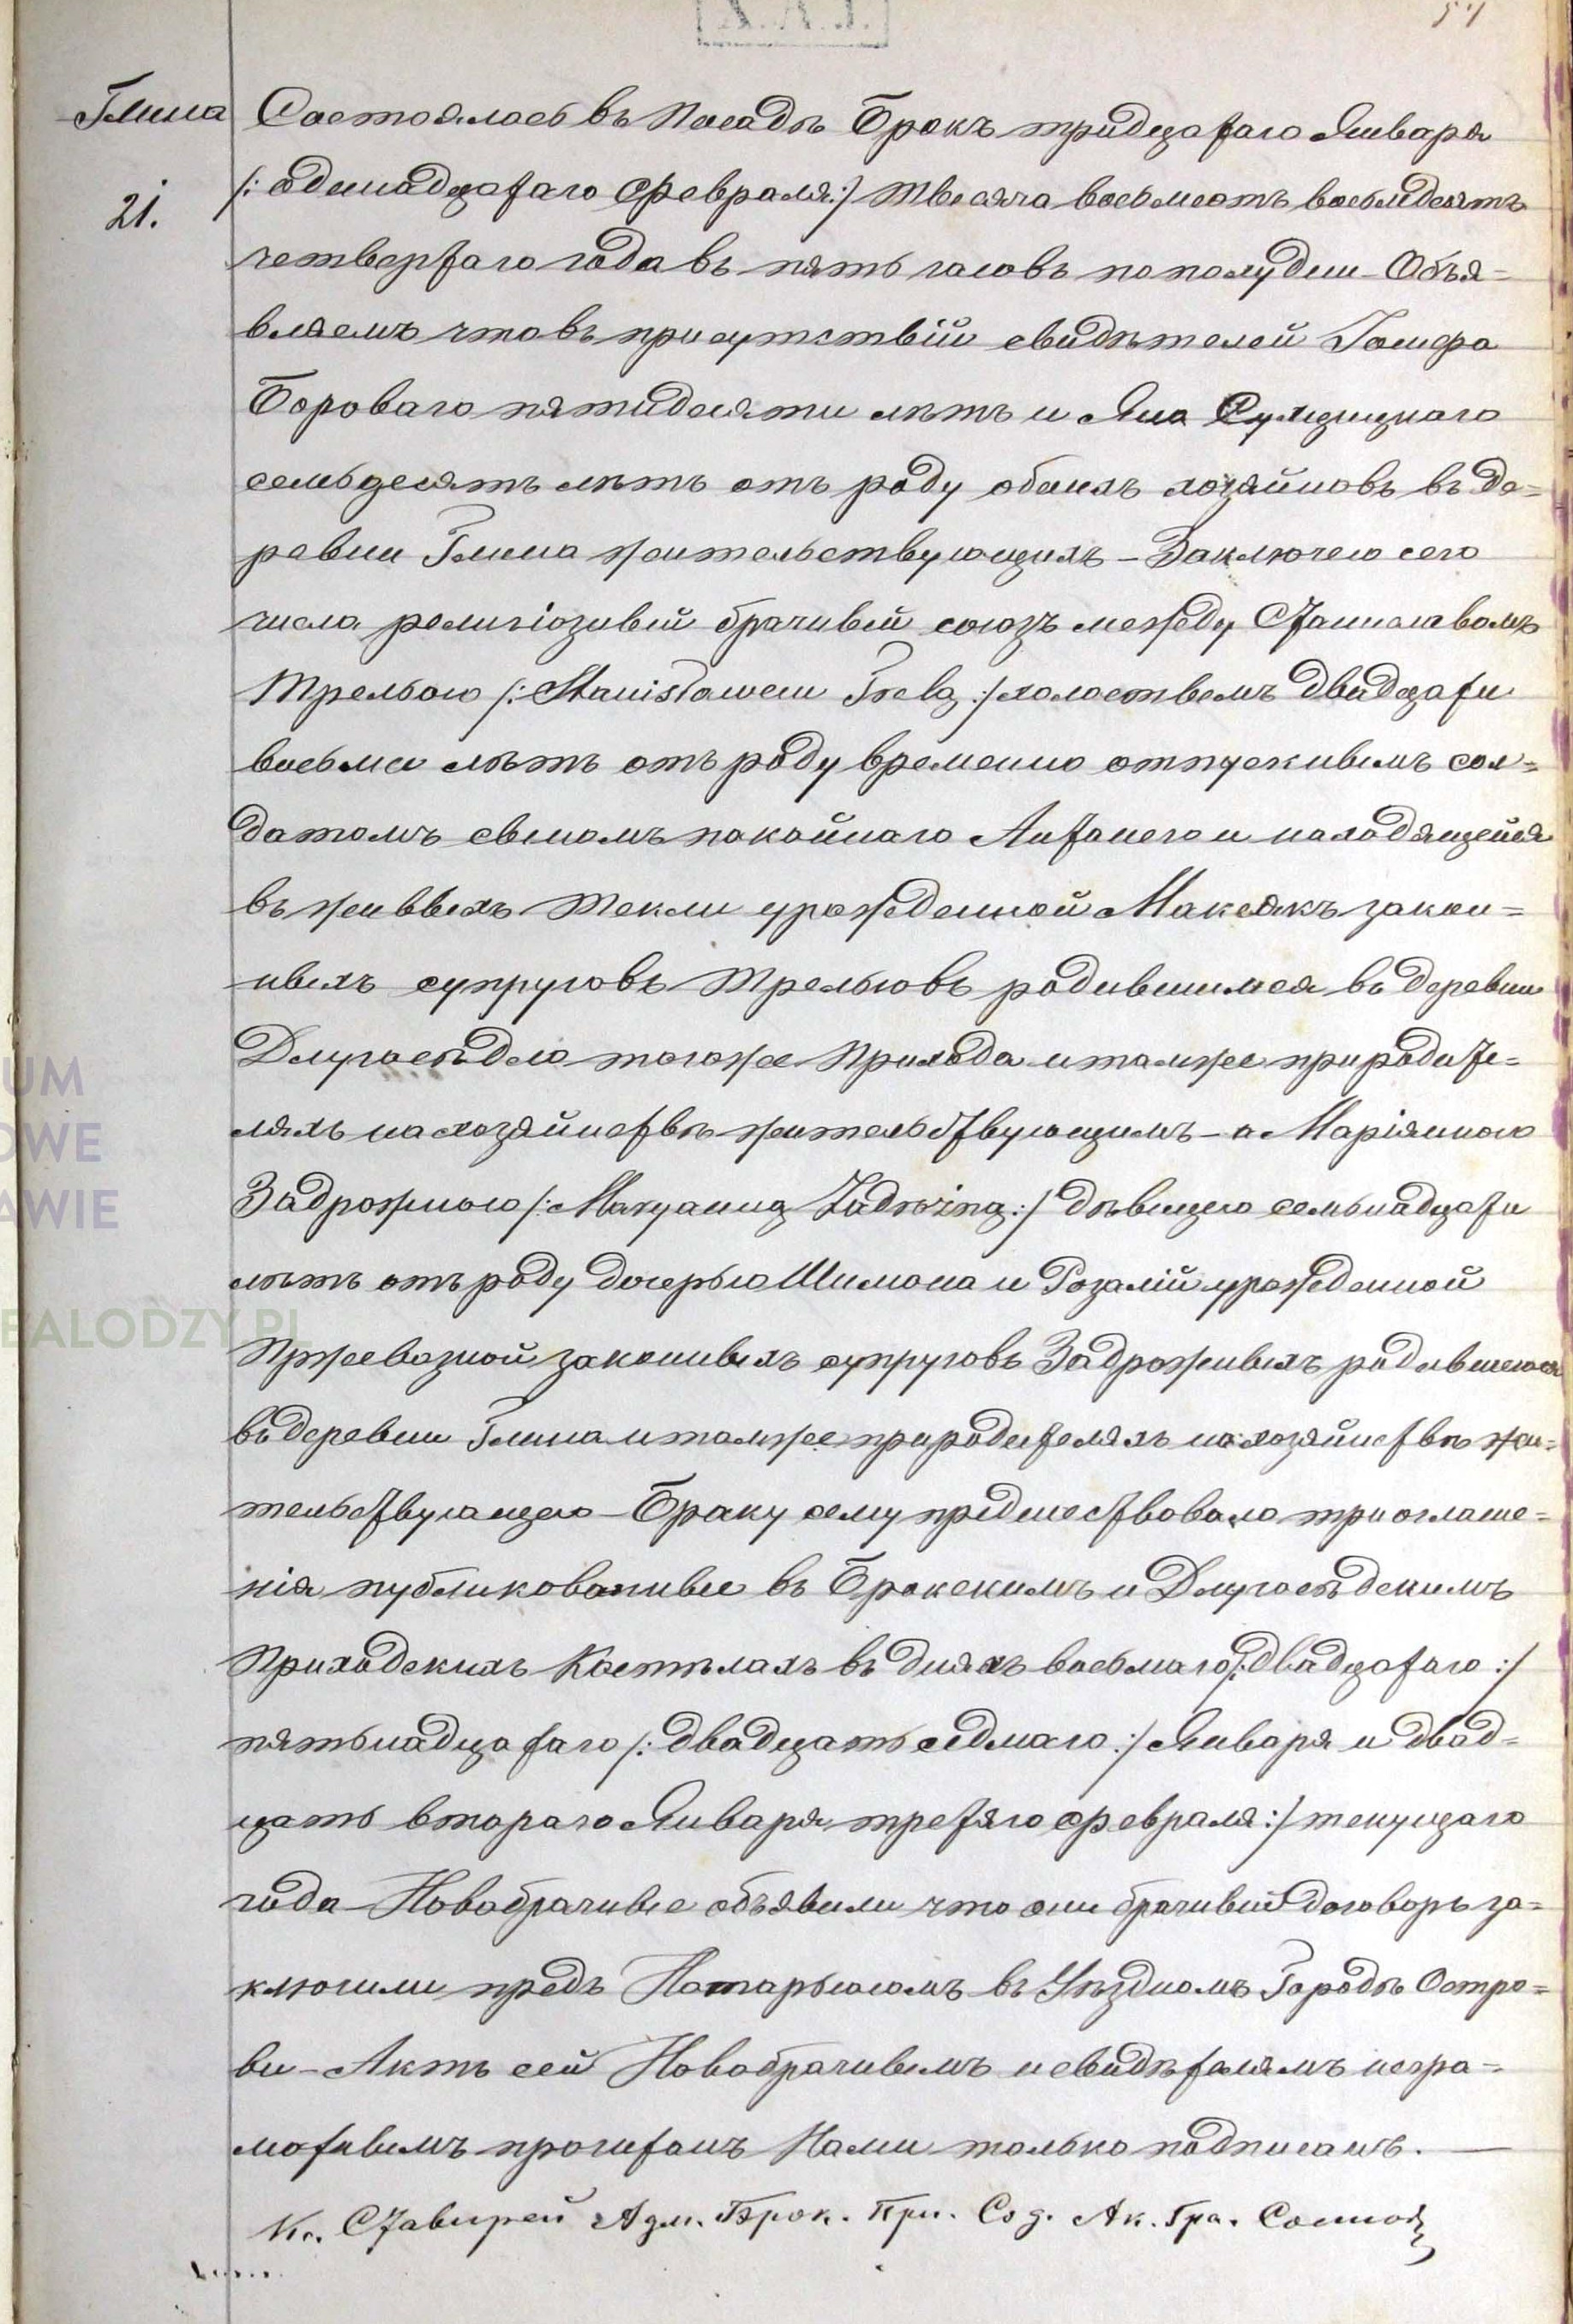 57
Глина Состоялось въ Посадѣ Брокъ тридцатаго Января
21. /: одинадцатаго Февраля :/ тысяча восьмсотъ восьмдесятъ
четвертаго года въ пять часовъ по полудни – Объя=
вляемъ что въ присутствіи свидѣтелей Іосифа
Бороваго пятидесяти лѣтъ и Яна
семьдесятъ лѣтъ отъ роду обоихъ хозяйновъ въ де=
ревни Глина жительствующихъ – Заключено сего
числа религіозный брачный союзъ между Станиславомъ
Трельою /: Stanisławem Trelą :/ холостымъ двадцати
восьми лѣтъ отъ роду временно отпускнымъ сол=
датомъ сыномъ покойнаго Антонего и находящейся
въ живыхъ Текли урожденной Максякъ закон=
ныхъ супруговъ Трельовъ родившимся въ деревни
Длугосѣдло тогоже Прихода и тамже при родите=
ляхъ на хозяйствѣ жительствующимъ – а Маріянною
Задрожною /: Maryanną Zadrożną :/ дѣвицею семьнадцати
лѣтъ отъ роду дочерью Шимона и Розалій урожденной
Пржевозной законныхъ супруговъ Задрожныхъ родившеюся
въ деревни Глина и тамже при родителяхъ на хозяйствѣ жи=
тельствующею – Браку сему предшествовало три оглаше=
нія публикованные въ Брокскимъ и Длугосѣдскимъ
Приходскихъ Костѣлахъ въ дняхъ восьмаго /: двадцатаго :/
пятьнадцатаго /: двадцать седмаго :/ Января и двад=
цать втораго Января третяго февраля :/ текущаго
года – Новобрачные объявили что они брачный договоръ за=
ключили предъ Нотарьюсомъ въ Уѣздномъ Городѣ Остро=
ви – Актъ сей Новобрачнымъ и свидѣтелямъ негра=
мотнымъ прочитанъ Нами только подписанъ. —
Кс. Адм. Брок. При. Сод. Ак. Гра. Состоя
UM
OWE
AWIE
EALODZY.PL